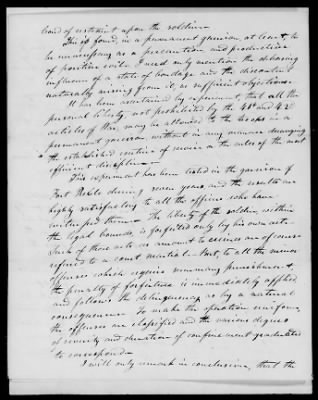 band of restraint upon the soldier.
This is found, in a permanent garrison, at least, to
be unnecessary as a precaution and productive
of positive evils. I need only mention the debasing
influence of a state of bondage and the discontent
naturally arising from it, as sufficient objections.
It has been ascertained by experiment that all the
personal liberty, not prohibited by the 41st and 42d
articles of War, may be allowed to the troops in a
permanent garrison without in any manner deranging
the established routine of service or the rules of the most
efficient discipline.
This experiment has been tested in the garrison of
Fort Noble during seven years and the results are
highly satisfactory to all the officers who have
witnessed them. The liberty of the soldier within
the legal bounds is forfeited only by his own acts.
Such of those acts as amount to crimes are of course
referred to a court martial. But, to all the minor
offences which require summary punishment,
the penalty of forfeiture is immediately applied,
and follows the delinquency as by a natural
consequence. To make the operation uniform,
the offences are classified and the various degrees
of severity and duration of confinement graduated
to correspond.
I will only remark in conclusion, that the